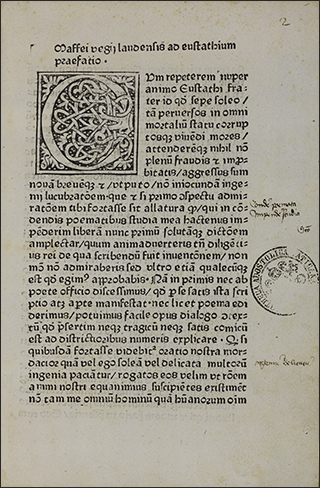 2
Maffei vegii laudensis ad eustathium
praefatio ·
CUm repeterem nuper
animo Eustathi fra-
ter id qđ sepe soleo /
tā peruersos in omni
mortaliū statu corrup
tosqʒ viuēdi mores /
attenderēqʒ nihil nō
plenū fraudis & imp̄
bitatis / aggressus sum
nouā breuēqʒ & / vt puto / nō iniocundā inge-
nij lucubratōem · que & si primo aspectu admi-
ratōem tibi fortasse sit allatura qđ / qui in cō-
dendis poematibus studia mea hactenus im-
pēderim liberā nunc primū solutāqʒ dictōem
amplectar / quum animaduerteris tn̄ diligēti-
us rei de qua scribendū fuit inuentōem / non
mō nō admiraberis sed vltro etiā qualecūqʒ
est qđ egim⁹ approbabis · Nā in primis nec ab
poete officio discessimus / qđ p̄se satis ista scri
ptio atqʒ apte manifestat · nec licet poema edi
derimus / potuimus facile opus dialogo p̄ex-
tū qđ p̄sertim neqʒ tragicū neqʒ satis comicū
est ad districtioribus numeris explicare · Qđ si
quibusdā fortasse videbit᷑ oratio nostra mor-
dacior quā vel ego soleā vel delicata multorū
ingenia paciāt᷑ / rogatos eos velim vt rōem
animi nostri equanimius suscipiētes existimēt
nō tam me omniū hominū quā hūanorum oim